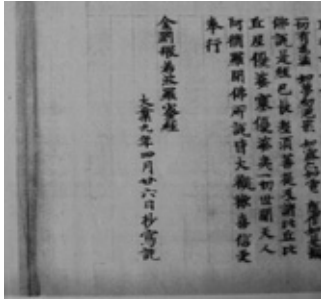 如夢幻泡影 如露亦如電 應作如是觀
佛說是經已長老須菩提及諸比丘比
丘尼優婆塞優婆夷一切世間天人
阿脩羅聞佛所說皆大歡喜信受
奉行
金剛般若波羅蜜經
大業九年四月廿六日抄寫訖